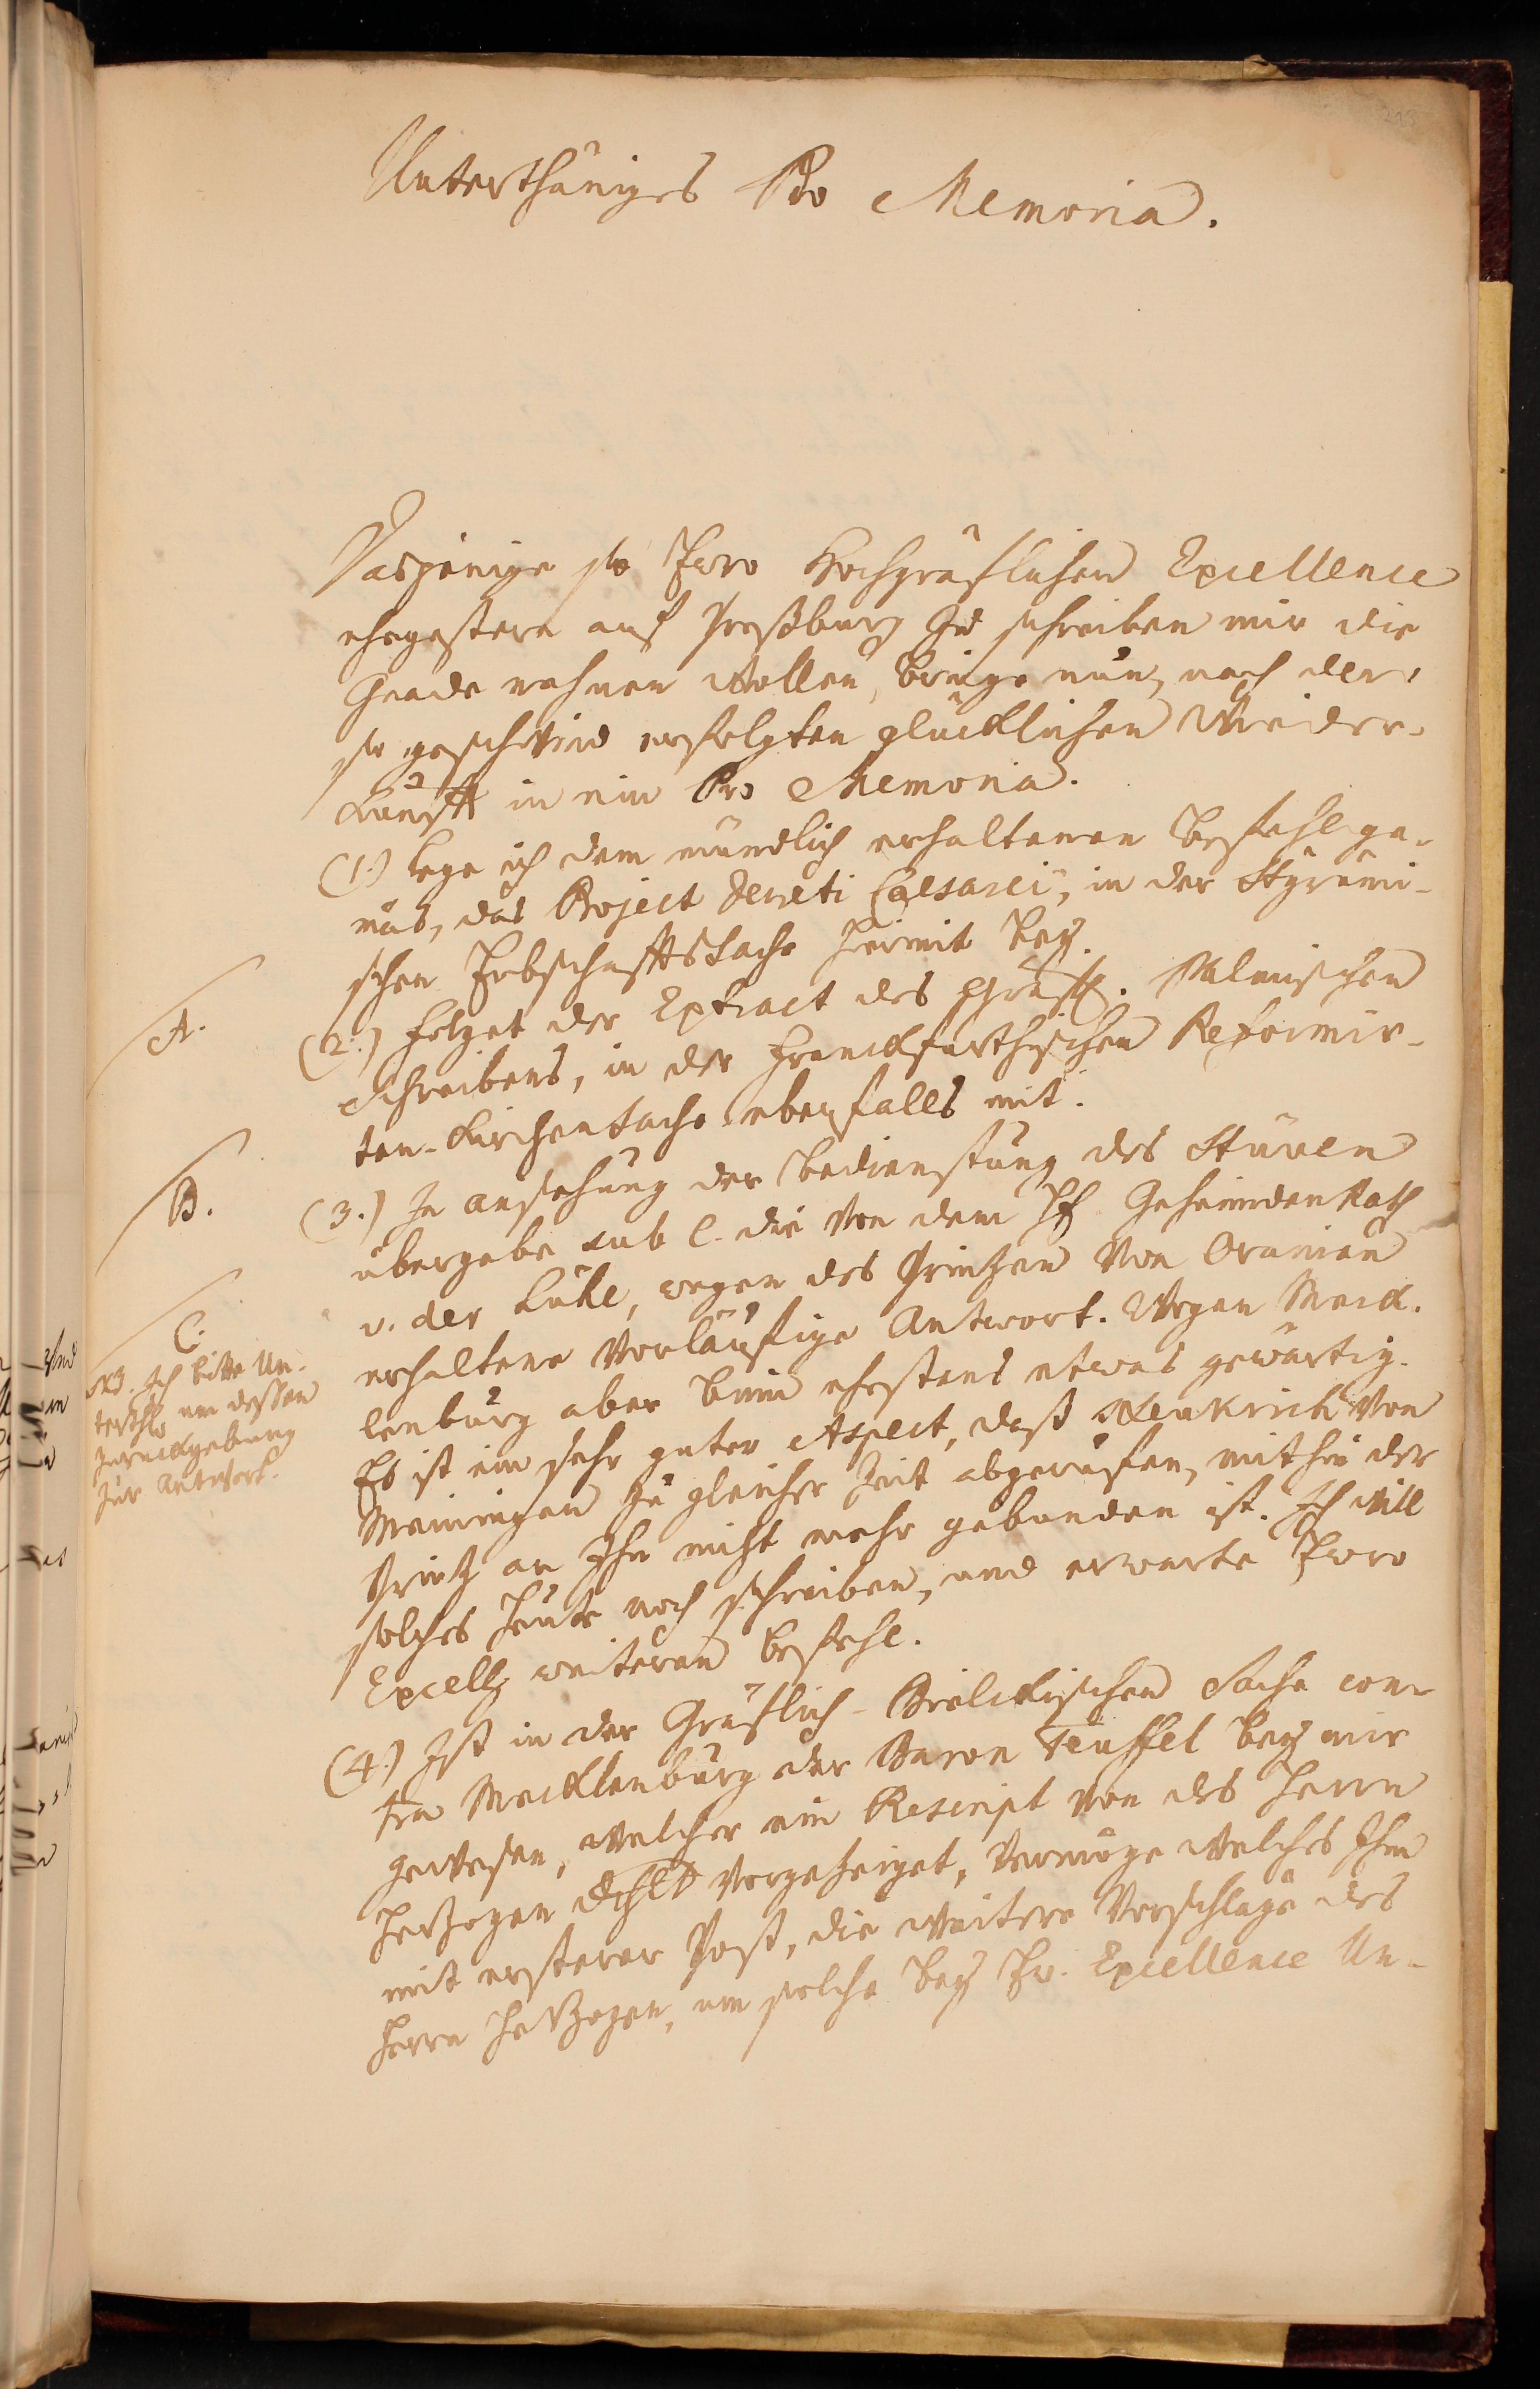 Unterthäniges Pro Memoria.
Dasjenige so Ewro Hochgräflichen Excellence
ehegestern auf Preßburg zu schreiben mir die
Gnade nehmen wollen, bringe nun, nach der,
so geschwind erfolgten glücklichen Wieder-
kunfft in ein Pro Memoria.
(1.) Lege ich dem mündlich erhaltenen Befehl ge-
mäs, das Project Decreti Caesarei, in der Styrumi-
schen Erbschafftssache hiermit bey.
A.
(2.) folget der Extract des Gräffl. Solmischen
Schreibens, in der Franckfurthischen Reformir-
ten-Kirchensache ebenfalls mit.
B.
(3.) In ansehung der Bedienstung des Stüven
übergebe sub C. die von dem H. Geheimden Rath
v. der Lühe, wegen des Printzen von Oranien
erhaltene vorläuffige Antwort. Wegen Meck-
lenburg aber binn ehestens etwas gewärtig.
Es ist ein sehr guter Aspect, daß von
Meiningen zu gleicher Zeit abgeruffen, mithin der
Printz an Ihn nicht mehr gebunden ist. Ich will
solches heute noch schreiben, und erwarte Ewro
Excellz weiteren Befehl.
C.
NB. Ich bitte Un-
terthl. um dessen
zurückgebung
zur Antwort.
(4.) Ist in der Gräflich-Bielckischen Sache con-
tra Mecklenburg der Baron Teuffel bey mir
gewesen, welcher ein Rescript von des Herrn
Hertzogen Dchlt vorgezeiget, vermöge welches Ihm
mit ersterer Post, die weitere Vorschläge des
Herrn Hertzogen, um solche bey Ew. Excellence Un-